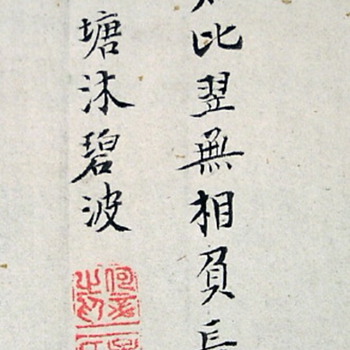 比翌無相負長
塘沐碧波